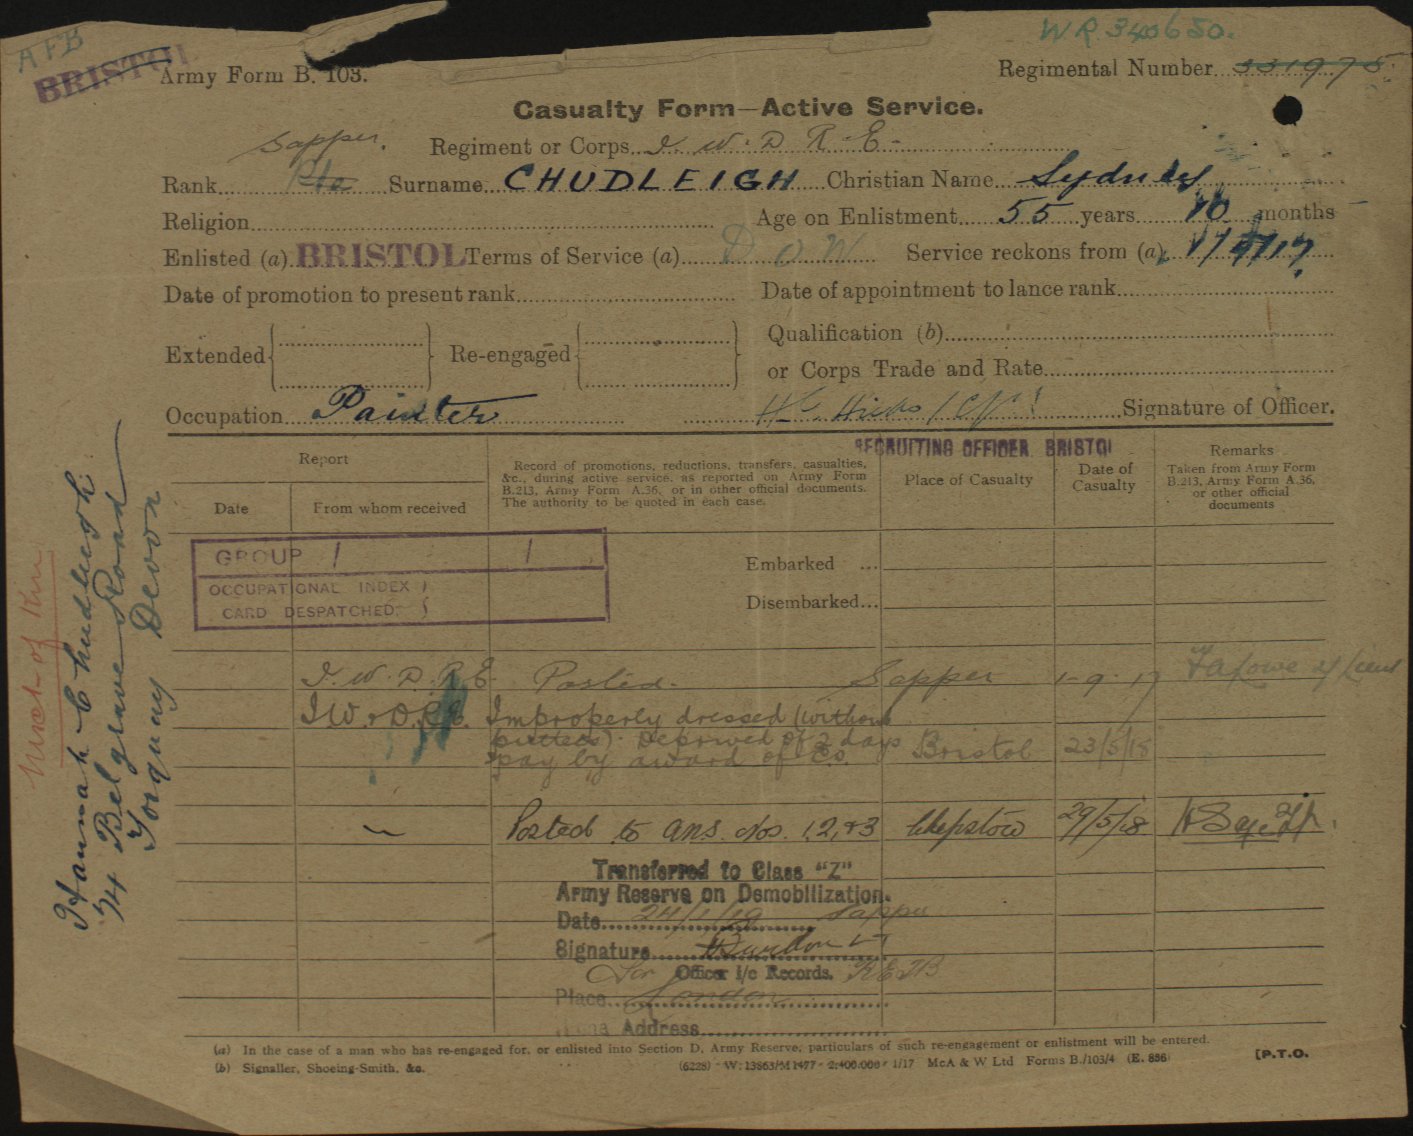 AFB
WR.340650.
BRISTOL
Army Form B. 103.
Regimental Number 331975
Casualty Form—Active Service.
Sapper. Regiment or Corps I. W. D. R. E.
Rank Pte Surname CHUDLEIGH Christian Name Sydney
Religion
Age on Enlistment 55 years 10 months
Enlisted (a) BRISTOL Terms of Service (a) D O W Service reckons from (a)
Date of promotion to present rank
Date of appointment to lance rank
Extended
Re-engaged
Qualification (b)
or Corps Trade and Rate
Occupation Painter
Hicks Signature of Officer.
RECRUITING OFFICER. BRISTOL
Report
Date
From whom received
Record of promotions, reductions, transfers, casualties,
&c., during active service, as reported on Army Form
B.213, Army Form A.36, or in other official documents.
The authority to be quoted in each case.
Place of Casualty
Date of
Casualty
Remarks
Taken from Army Form
B.213, Army Form A.36,
or other official
documents
GROUP 1 1
OCCUPATIONAL INDEX
CARD DESPATCHED.
Embarked ...
Disembarked...
I. W. D. R. E. Posted - Sapper 1-9-17
I.W. & D.R.E. Improperly dressed (without
puttees). Deprived of 2 days
pay by award of Bristol 23/5/18
Posted to ans. Nos. 1, 2, & 3 Chepstow 29/5/18
Transferred to Class “Z”
Army Reserve on Demobilization.
Date 24/1/19 Sapper
Signature Burdon Lt
for Officer i/c Records.
Place London
Address
(a) In the case of a man who has re-engaged for, or enlisted into Section D, Army Reserve, particulars of such re-engagement or enlistment will be entered.
(b) Signaller, Shoeing-Smith, &c.
(6228) W. 13863/M1477 2,400,000 1/17 McA & W Ltd Forms B./103/4 (E. 886)
[P.T.O.
Next-of Kin
Hannah Chudleigh
74 Belgrave Road
Torquay Devon